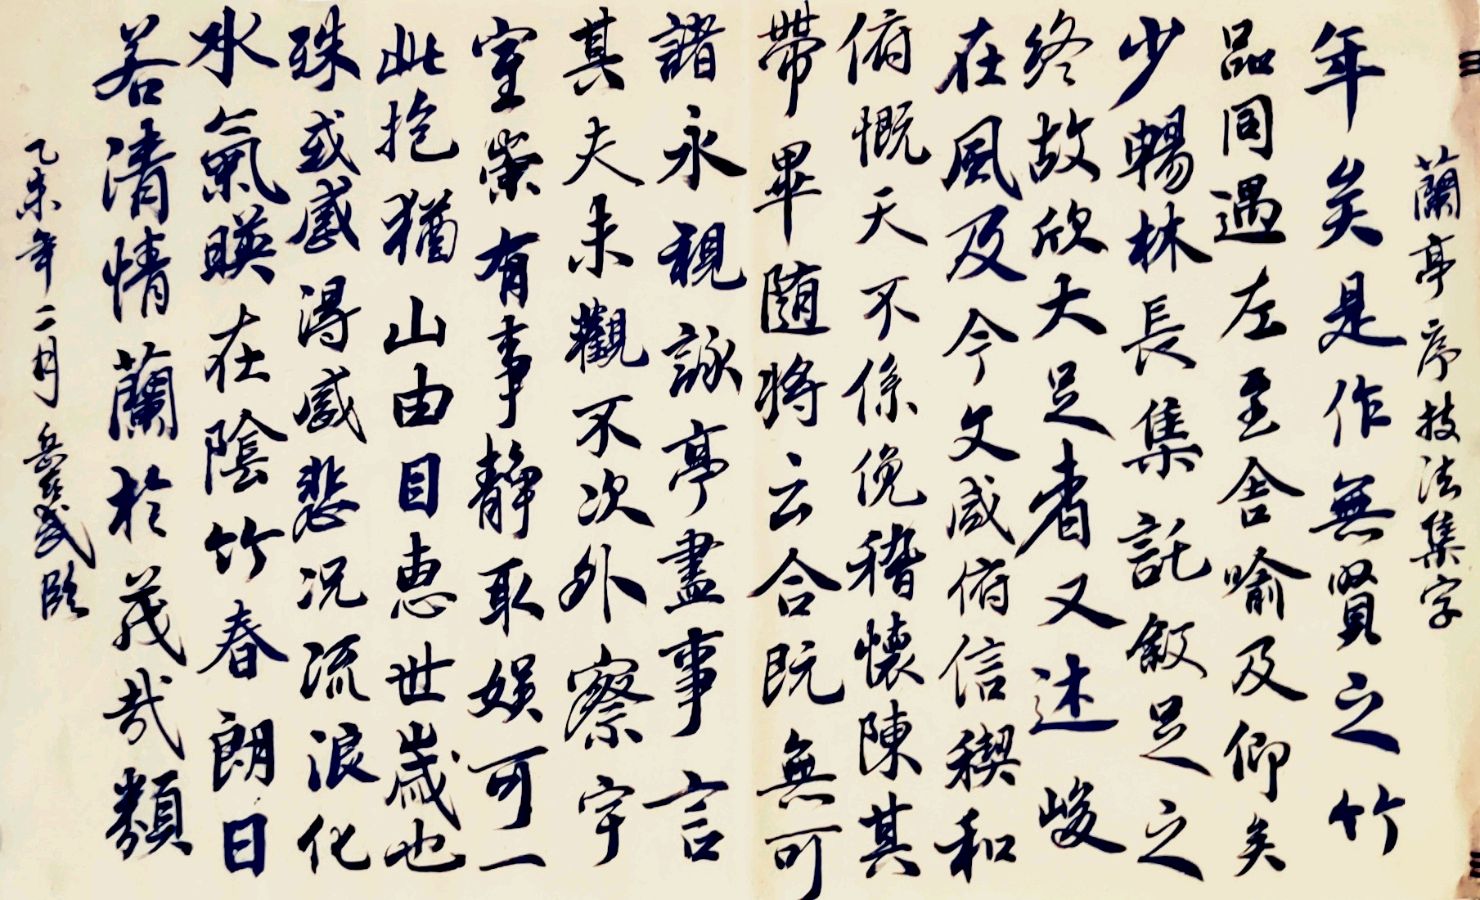 蘭亭序技法集字
年矣是作無賢之竹
品同遇左至舍喻及仰矣
少暢林長集託敘足之
終故欣大足者又述峻
在風及今文咸俯信稧和
俯慨天不係俛稽懷陳其
帶畢隨將云合既無可
諸永視詠亭盡事言
其夫未觀不次外察宇
室崇有事靜取娛可一
此抱猶山由目惠世歲也
殊或感得感悲况流浪化
水氣暎在陰竹春朗日
若清情蘭於茂哉類
乙未年二月岳武臨